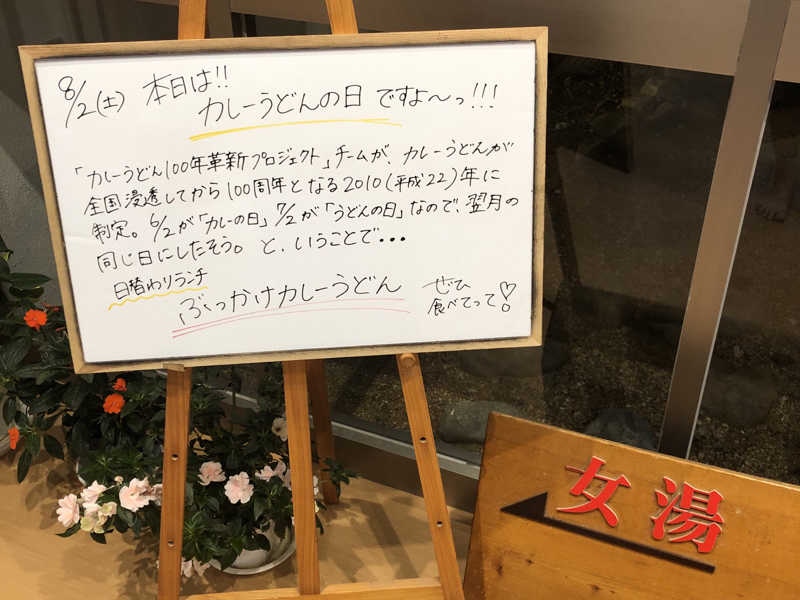 8/2(土) 本日は!!
カレーうどんの日 ですよ〜っ!!!
「カレーうどん100年革新プロジェクト」チームが、カレーうどんが
全国浸透してから100周年となる2010(平成22)年に
制定。6/2が「カレーの日」7/2が「うどんの日」なので、翌月の
同じ日にしたそう。と、いうことで・・・
日替わりランチ
ぶっかけカレーうどん
ぜひ
食べてって♡
女湯